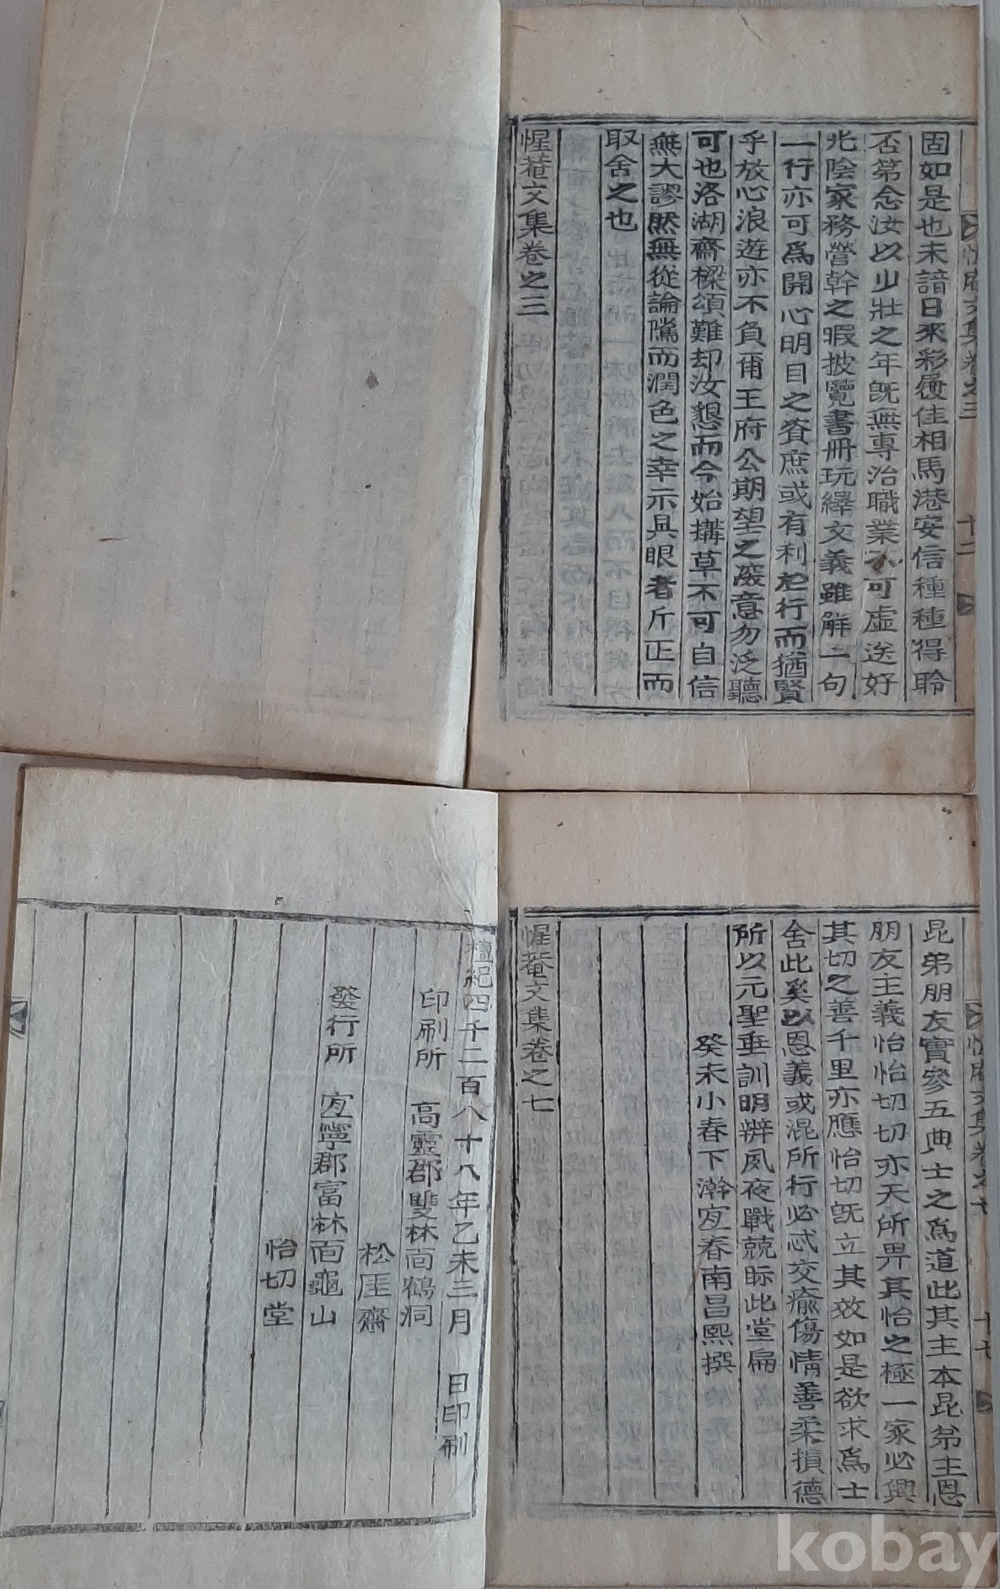 固如是也未諳日來彩履佳相馬港安信種種得聆
否第念汝以少壯之年旣無專治職業不可虛送好
光陰家務營幹之暇披覽書冊玩繹文義雖解一句
一行亦可爲開心明目之資庶或有利於行而猶賢
乎放心浪遊亦不負爾王府公期望之厚意勿泛聽
可也洛湖齋樑頌難却汝懇而今始搆草不可自信
無大謬然無從論隲而潤色之幸示具眼者斤正而
取舍之也
惺菴文集卷之三
惺菴文集卷之三
十二
昆弟朋友實參五典士之爲道此其主本昆弟主恩
朋友主義怡怡切切亦天所畀其怡之極一家必興
其切之善千里亦應怡切旣立其效如是欲求爲士
舍此奚以恩義或混所行必忒交瘉傷情善柔損德
所以元聖垂訓明辨夙夜戰兢眎此堂扁
癸未小春下澣宜春南昌熙撰
惺菴文集卷之七
惺菴文集卷之七
檀紀四千二百八十八年乙未三月 日印刷
印刷所 高靈郡雙林面鶴洞
松厓齋
發行所 宜寧郡富林面龜山
怡切堂
kobay